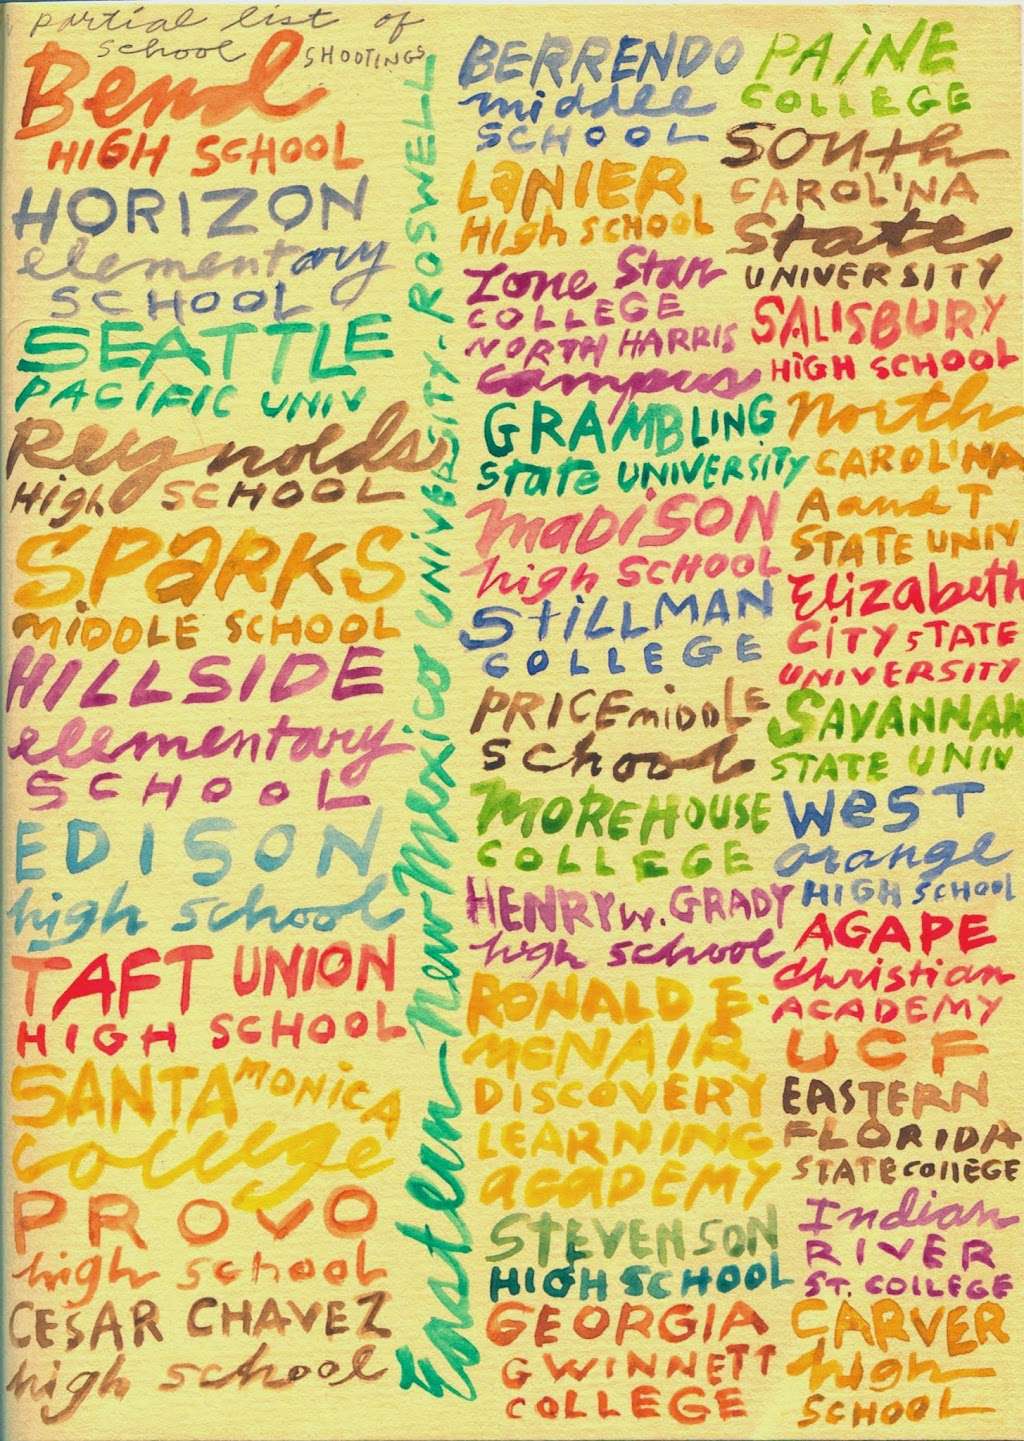 partial list of
school SHOOTINGS
Bend
HIGH SCHOOL
HORIZON
elementary
SCHOOL
SEATTLE
PACIFIC UNIV
Reynolds
High SCHOOL
SPARKS
MIDDLE SCHOOL
HILLSIDE
elementary
SCHOOL
EDISON
high school
TAFT UNION
HIGH SCHOOL
SANTA MONICA
College
PROVO
high school
CESAR CHAVEZ
high school
Eastern New Mexico UNIVERSITY-ROSWELL
BERRENDO
middle
SCHOOL
LANIER
High SCHOOL
Lone Star
COLLEGE
NORTH HARRIS
campus
GRAMBLING
State UNIVERSITY
MADISON
high SCHOOL
STILLMAN
COLLEGE
PRICE MIDDLE
School
MOREHOUSE
COLLEGE
HENRY W. GRADY
high school
RONALD E.
McNAIR
DISCOVERY
LEARNING
ACADEMY
STEVENSON
HIGH SCHOOL
GEORGIA
GWINNETT
COLLEGE
PAINE
COLLEGE
South
CAROLINA
State
UNIVERSITY
SALISBURY
HIGH SCHOOL
North
CAROLINA
A and T
STATE UNIV
Elizabeth
CITY STATE
UNIVERSITY
SAVANNAH
STATE UNIV
WEST
orange
HIGH SCHOOL
AGAPE
Christian
ACADEMY
UCF
EASTERN
FLORIDA
STATE COLLEGE
Indian
RIVER
ST. COLLEGE
CARVER
high
SCHOOL